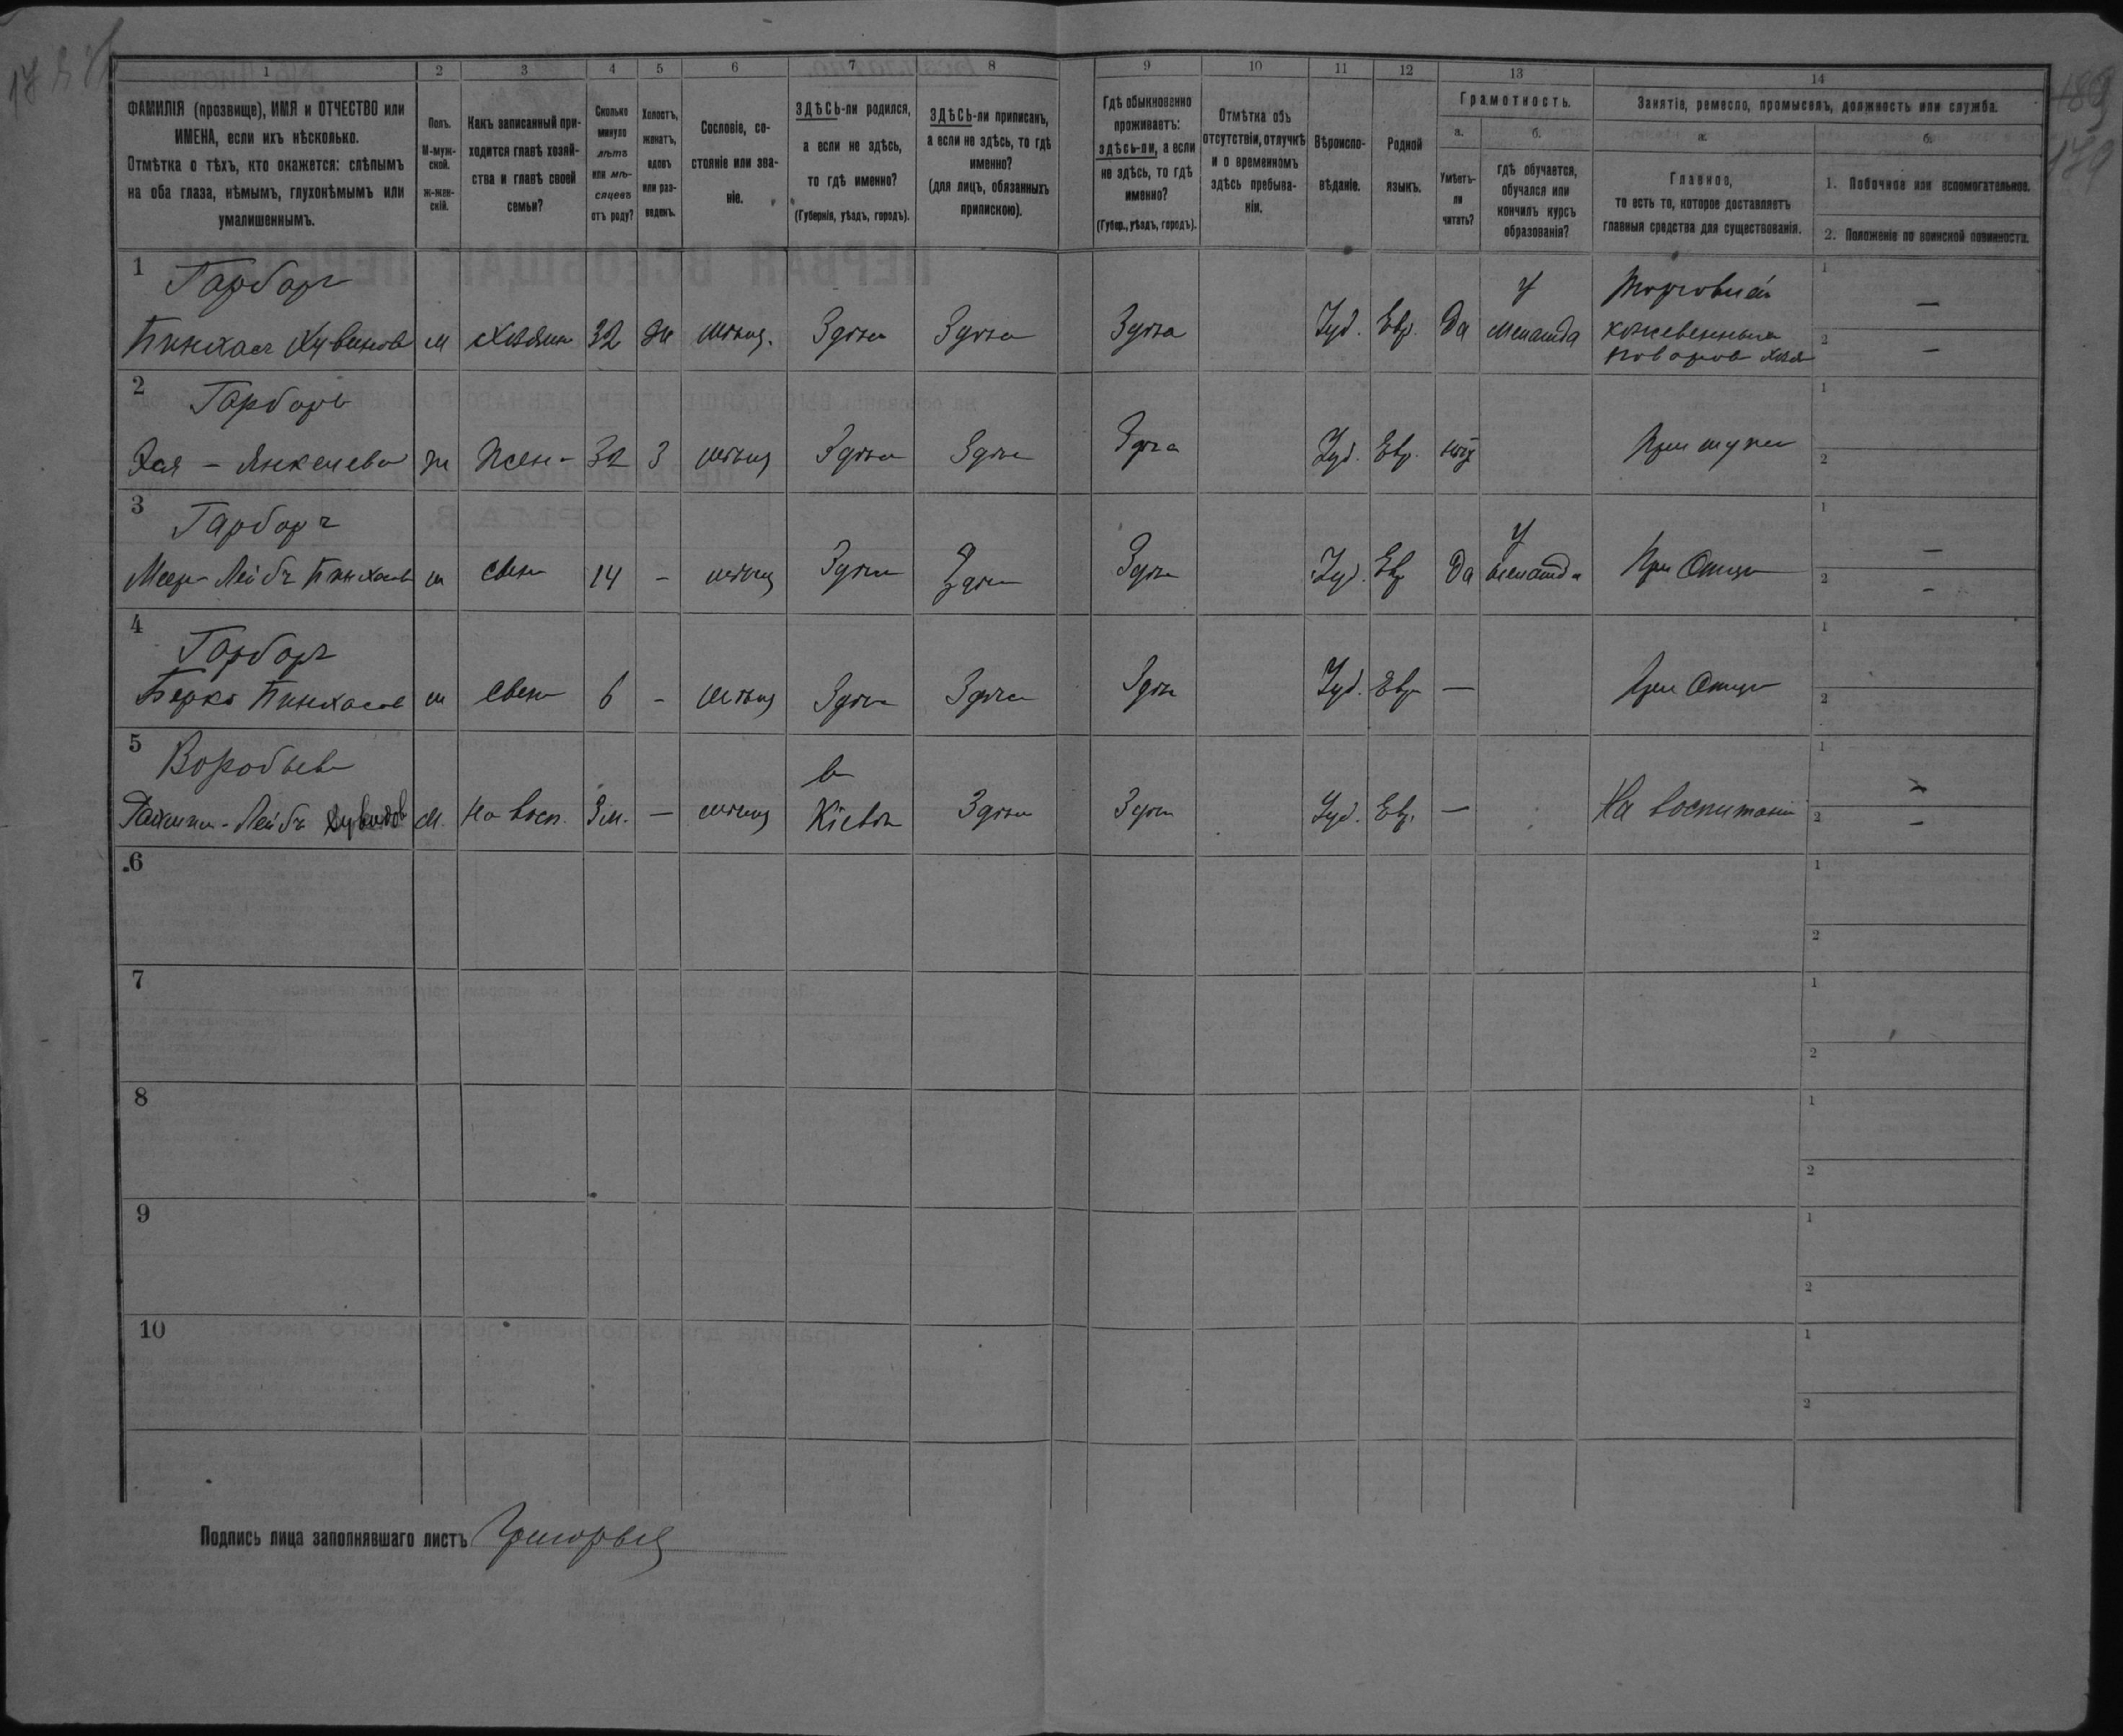 1 2 3 4 5 6 7 8 9 10 11 12 13 14
ФАМИЛІЯ (прозвище), ИМЯ и ОТЧЕСТВО или
ИМЕНА, если ихъ нѣсколько.
Отмѣтка о тѣхъ, кто окажется: слѣпымъ
на оба глаза, нѣмымъ, глухонѣмымъ или
умалишеннымъ.
Полъ.
М-муж-
ской.
ж-жен-
скій.
Какъ записанный при-
ходится главѣ хозяй-
ства и главѣ своей
семьи?
Сколько
минуло
лѣтъ
или мѣ-
сяцевъ
отъ роду?
Холостъ,
женатъ,
вдовъ
или раз-
веденъ.
Сословіе, со-
стояніе или зва-
ніе.
ЗДѢСЬ-ли родился,
а если не здѣсь,
то гдѣ именно?
(Губернія, уѣздъ, городъ).
ЗДѢСЬ-ли приписанъ,
а если не здѣсь, то гдѣ
именно?
(для лицъ, обязанныхъ
припискою).
Гдѣ обыкновенно
проживаетъ:
здѣсь-ли, а если
не здѣсь, то гдѣ
именно?
(Губер., уѣздъ, городъ).
Отмѣтка объ
отсутствіи, отлучкѣ
и о временномъ
здѣсь пребыва-
ніи.
Вѣроиспо-
вѣданіе.
Родной
языкъ.
Грамотность.
а.
Умѣетъ-
ли
читать?
б.
гдѣ обучается,
обучался или
кончилъ курсъ
образованія?
Занятіе, ремесло, промыселъ, должность или служба.
а.
Главное,
то есть то, которое доставляетъ
главныя средства для существованія.
б.
1. Побочное или вспомогательное.
2. Положеніе по воинской повинности.
1 Гарбаръ
Пинхасъ м Хозяинъ 32 Ж мѣщ. Здѣсь Здѣсь Здѣсь Іуд. Евр. Да у меламда
Торговлей
кожевенныхъ
товаровъ хозя
1 —
2 —
2 Гарбаръ
Хая - Янкелева ж Жен- 32 З мѣщ Здѣсь Здѣсь Здѣсь Іуд. Евр. нѣт При мужѣ
1
2
3 Гарбаръ
Меер-Лейбъ Пинхасов м Сынъ 14 - мѣщ Здѣсь Здѣсь Здѣсь Іуд. Евр Да у меламда При Отцѣ
1 —
2 -
4 Гарбаръ
Берко Пинхасов м Сынъ 6 - мѣщ Здѣсь Здѣсь Здѣсь Іуд. Евр — При Отцѣ
1
2
5 Воробьев
Лейбъ м. На восп. 3 м. — мѣщ в Кіевѣ Здѣсь Здѣсь Іуд. Евр. — На воспитаніи
1 -
2 -
6
1
2
7
1
2
8
1
2
9
1
2
10
1
2
Подпись лица заполнявшаго листъ